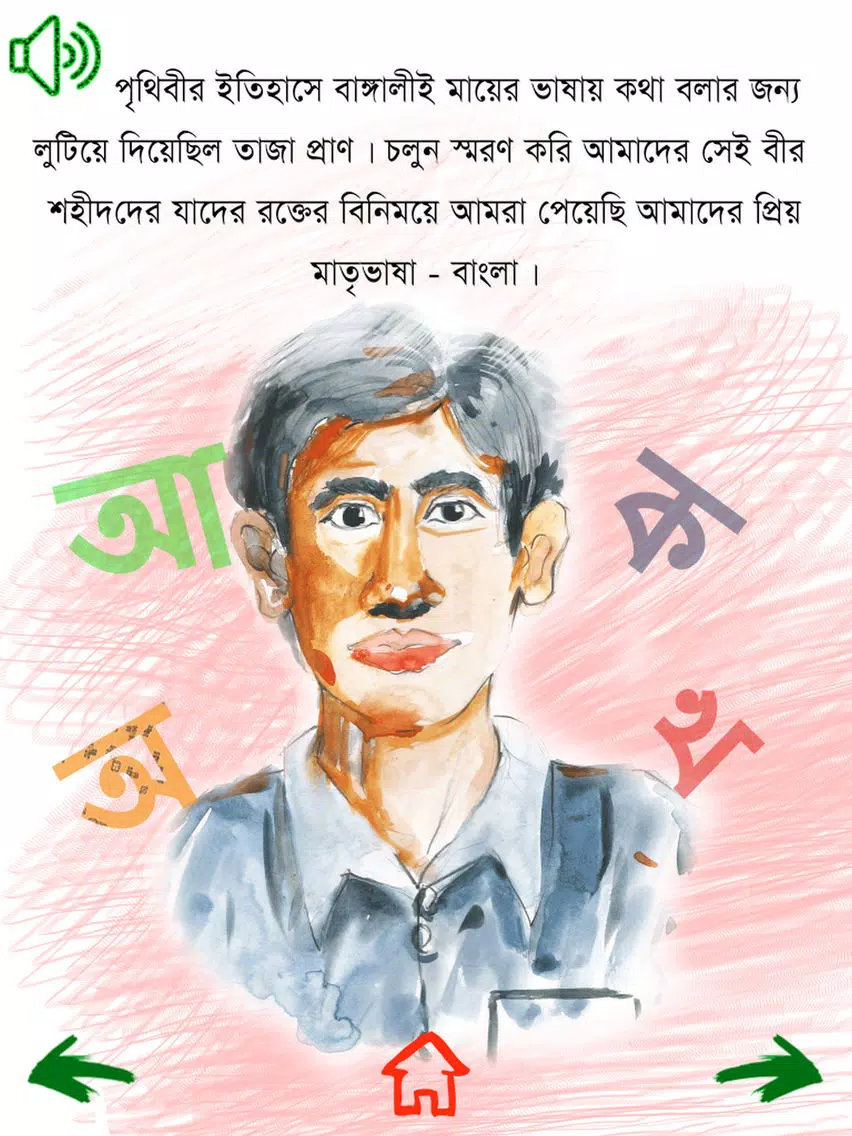 পৃথিবীর ইতিহাসে বাঙ্গালীই মায়ের ভাষায় কথা বলার জন্য
লুটিয়ে দিয়েছিল তাজা প্রাণ । চলুন স্মরণ করি আমাদের সেই বীর
শহীদদের যাদের রক্তের বিনিময়ে আমরা পেয়েছি আমাদের প্রিয়
মাতৃভাষা - বাংলা ।
আ
ক
অ
খ